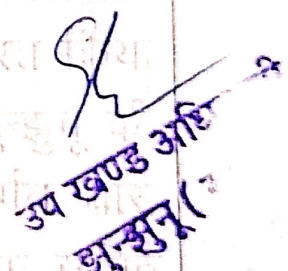 उप खण्ड अधि
झुन्झुनू (